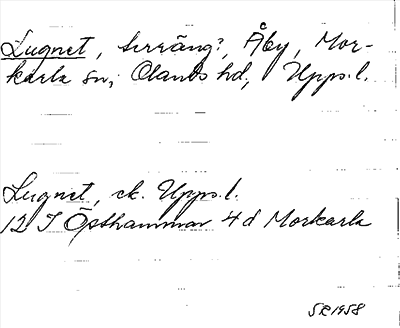 Lugnet, terräng?, Åby, Mor-
karla sn, Olands hd, Upps. l.
Lugnet, ek. Upps. l.
12 I Östhammar 4d Morkarla
SR 1958